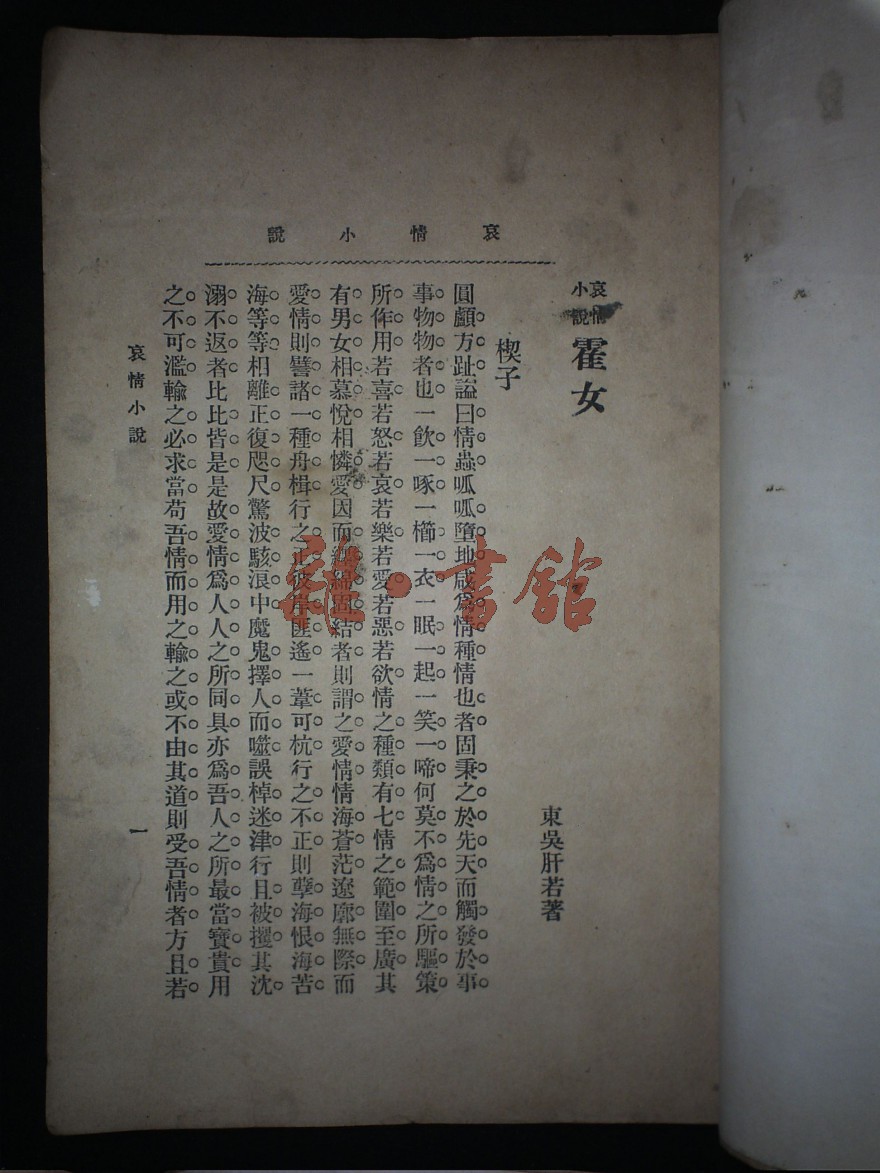 哀情小說
哀情小說 霍女
東吳肝若著
楔子
圓顱方趾謚曰情蟲呱呱墮地咸爲情種情也者固秉之於先天而觸發於事
事物物者也一飲一啄一櫛一衣一眠一起一笑一啼何莫不爲情之所驅策
所作用若喜若怒若哀若樂若愛若惡若欲情之種類有七情之範圍至廣其
有男女相慕悅相憐愛因而纏綿固結者則謂之愛情情海蒼茫遼廓無際而
愛情則譬諸一種舟楫行之正彼岸匪遙一葦可杭行之不正則孽海恨海苦
海等等相離正復咫尺驚波駭浪中魔鬼擇人而噬誤棹迷津行且被攫其沈
溺不返者比比皆是是故愛情爲人人之所同具亦爲吾人之所最當寶貴用
之不可濫輸之必求當苟吾情而用之輸之或不由其道則受吾情者方且若
哀情小說
一
雜·書館